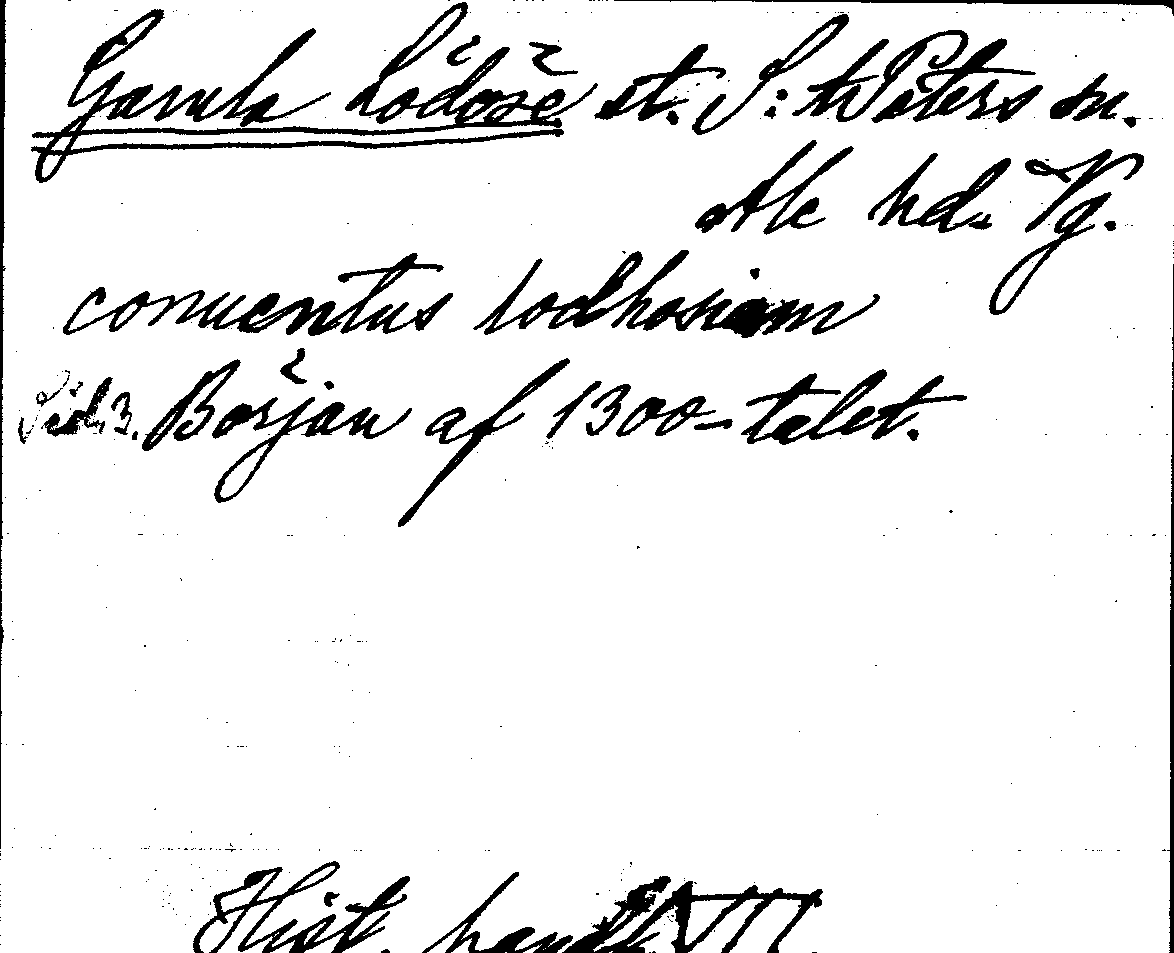 Gamla Lödöse st. S: t Peters sn.
Ale hd. Vg.
conuentus lodhosiam
Sid. 3. Början af 1300-talet.
Hist. handl. VIII.